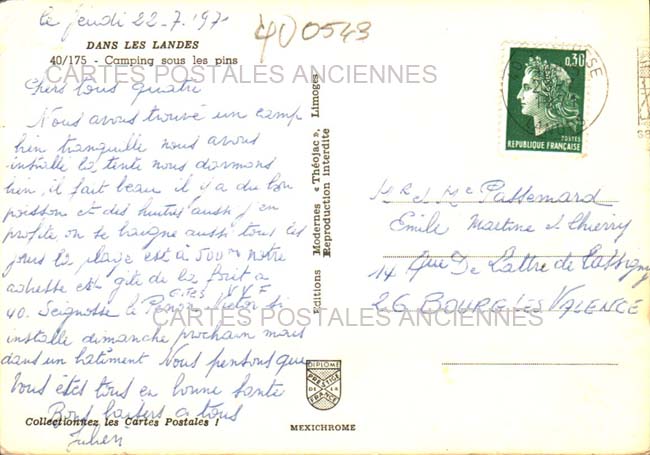 le jeudi 22.7.197
400543
DANS LES LANDES
40/175 - Camping sous les pins
CARTES POSTALES ANCIENNES
Chers tous quatre
Nous avons trouvé un camp
bien tranquille nous avons
installé la tente nous dormons
bien, il fait beau il y a du bon
poisson et des huitres aussi j'en
profite on se baigne aussi tous les
jours la plage est à 500m notre
adresse est gite de la forêt a
cites V V F
40. Seignosse le Penon Victor si
installe dimanche prochain mais
dans un batiment Nous pensons que
vous êtes tous en bonne santé
Bons baisers a tous
Julien
Collectionnez les Cartes Postales !
Editions Modernes « Théojac », Limoges
Reproduction interdite
DIPLOME
PRESTIGE
DE LA
FRANCE
MEXICHROME
0,30
POSTES
REPUBLIQUE FRANÇAISE
Mr & Me Passemard
Emile Martine & Thierry
14 Rue De Lattre de Tassigny
26 BOURG LES VALENCE
CARTES POSTALES ANCIENNES